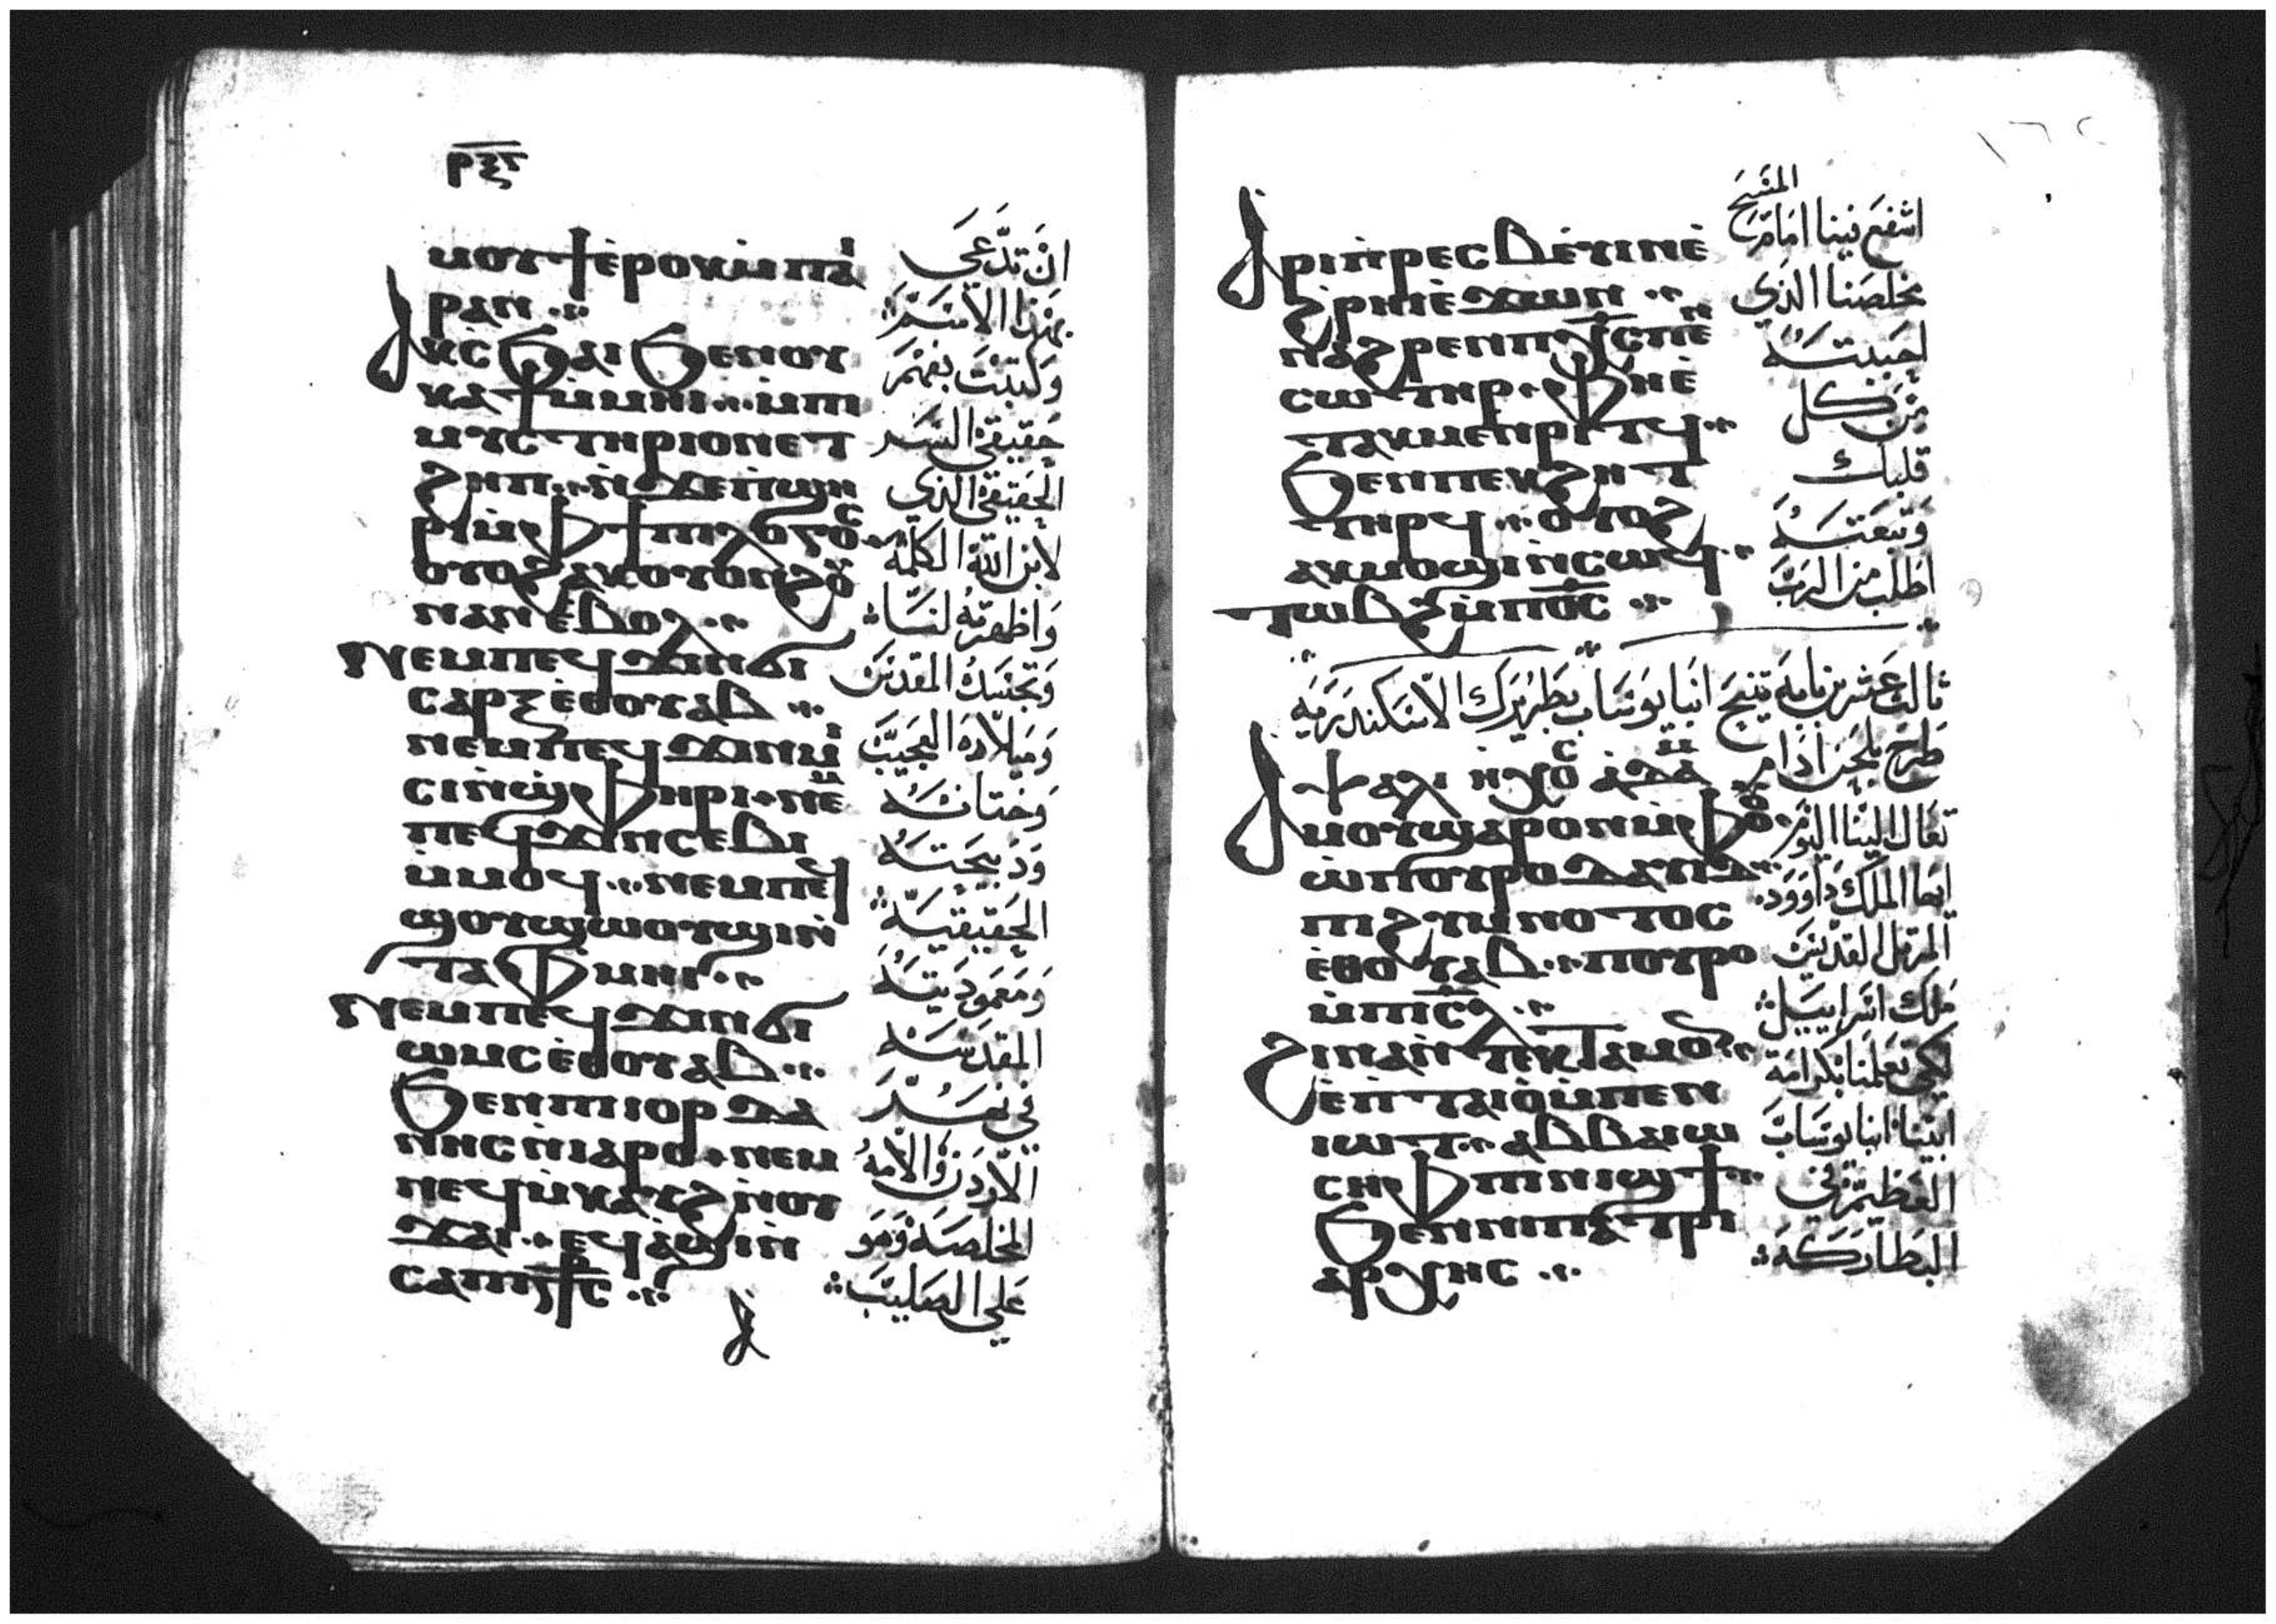 ⲣⲝⲋ
ⲙⲟⲩϯ ⲉ̀ⲣⲟⲕ ⲙ̀ⲡⲁⲓ
ⲣⲁⲛ
ⲁⲕⲥϧⲁⲓ ϧⲉⲛ ⲟⲩ
ⲕⲁϯ ⲙ̀ⲙⲏⲓ ⲙ̀ⲡⲓ
ⲙⲩⲥⲧⲏⲣⲓⲟⲛ ⲉⲧ
ϩⲏⲡ ⲛ̀ϫⲉ ⲡ̀ϣⲏ
ⲣⲓ ⲙ̀ⲫϯ ⲡⲓⲗⲟⲅⲟⲥ
ⲟⲩⲟϩ ⲁⲕⲟⲩⲟⲛϩϥ
ⲛⲁⲛ ⲉ̀ⲃⲟⲗ
ⲛⲉⲙ ⲡⲉϥϫⲓⲛϭⲓ
ⲥⲁⲣⲝ ⲉ̀ⲑⲟⲩⲁⲃ
ⲛⲉⲙ ⲡⲉϥϫⲓⲛⲙⲓ
ⲥⲓ ⲛ̀ϣⲫⲏⲣⲓ ⲛⲉⲙ
ⲡⲉϥϫⲓⲛⲥⲉⲃⲓ
ⲙ̀ⲙⲟϥ ⲛⲉⲙ ⲡⲉϥ
ϣⲟⲩϣⲱⲟⲩϣⲓ ⲛ̀
ⲧⲁⲫⲙⲏⲓ
ⲛⲉⲙ ⲡⲉϥϫⲓⲛϭⲓ
ⲱⲙⲥ ⲉ̀ⲑⲟⲩⲁⲃ
ϧⲉⲛ ⲡⲓⲓⲟⲣⲇⲁ
ⲛⲏⲥ ⲛ̀ⲓⲁⲣⲟ ⲛⲉⲙ
ⲛⲉϥⲙ̀ⲕⲁⲩϩ ⲛ̀ⲟⲩ
ϫⲁⲓ ⲉϥⲁ̀ϣⲓ ⲛ̀
ⲥⲁ ⲡⲓⲥ̅ⲧ̅ⲥ̅
ان تدعي
بهذا الاسم
وكتبت بفهم
حقيقي السر
الحقيقي الذي
لابن الله الكلمة
واظهرته لنا
وتجسده المقدس
وميلاده العجيب
وختانه
وذبيحته
الحقيقية
ومعموديته
المقدسة
في نهر
الاردن والامه
المخلصة وهو
علي الصليب
١٦٥
ⲁⲣⲓⲡ̀ⲣⲉⲥⲃⲉⲩⲓⲛ ⲉ̀
ϩ̀ⲣⲏⲓ ⲉ̀ϫⲱⲛ
ⲛⲁϩⲣⲉⲛ ⲡⲭ̅ⲥ̅ ⲡⲉⲛ
ⲥⲱⲧⲏⲣ ⲫⲏ ⲉ̀
ⲧⲁⲕⲙⲉⲛⲣⲓⲧϥ
ϧⲉⲛ ⲡⲉⲕϩⲏⲧ
ⲧⲏⲣϥ ⲟⲩⲟϩ
ⲁⲕⲙⲟϣⲓ ⲛ̀ⲥⲱϥ
ⲧⲱⲃϩ ⲙ̀ⲡⲟ̅ⲥ̅
المسيح
اشفع فينا امام
مخلصنا الذي
احببته
من كل
قلبك
وتبعته
اطلب من الرب
ثالث عشرين بابه تنيح انبا يوساب بطريرك الاسكندريه
طرح بلحن ادام
ⲯⲁⲗⲓ ⲏⲭⲟⲥ ⲁⲇⲁⲙ
ⲁⲙⲟⲩ ϣⲁⲣⲟⲛ ⲙ̀ⲫⲟⲟⲩ
ⲱ̀ ⲡⲟⲩⲣⲟ ⲇⲁⲩⲓⲇ
ⲡⲓϩⲩⲙⲛⲟⲧⲟⲥ
ⲉ̀ⲑⲟⲩⲁⲃ ⲡⲟⲩⲣⲟ
ⲙ̀ⲡⲓⲥ̅ⲗ̅
ϩⲓⲛⲁ ⲛ̀ⲧⲉⲕⲧⲁⲙⲟⲛ
ⲉ̀ⲡ̀ⲧⲁⲓⲟ̀ ⲙ̀ⲡⲉⲛ
ⲓⲱⲧ ⲁⲃⲃⲁ ⲓⲱ
ⲥⲏⲫ ⲡⲓⲛⲓϣϯ
ϧⲉⲛ ⲛⲓⲡⲁⲧⲣⲓ
ⲁⲣⲭⲏⲥ
تعال الينا اليوم
ايها الملك داوود
المرتل القديس
ملك اسراييل
لكي تعلمنا بكرامة
ابينا انبا يوساب
العظيم في
البطاركة